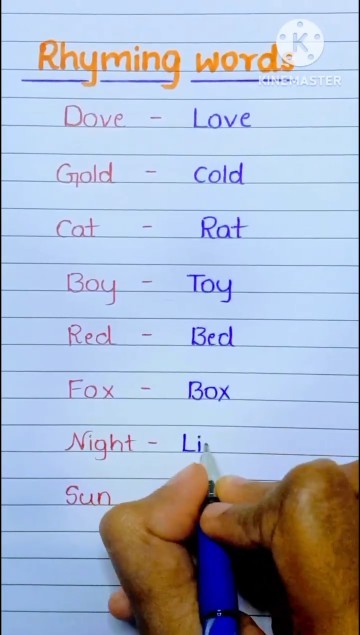 Rhyming words
KINEMASTER
Dove - Love
Gold - cold
Cat - Rat
Boy - Toy
Red - Bed
Fox - Box
Night - Li
Sun